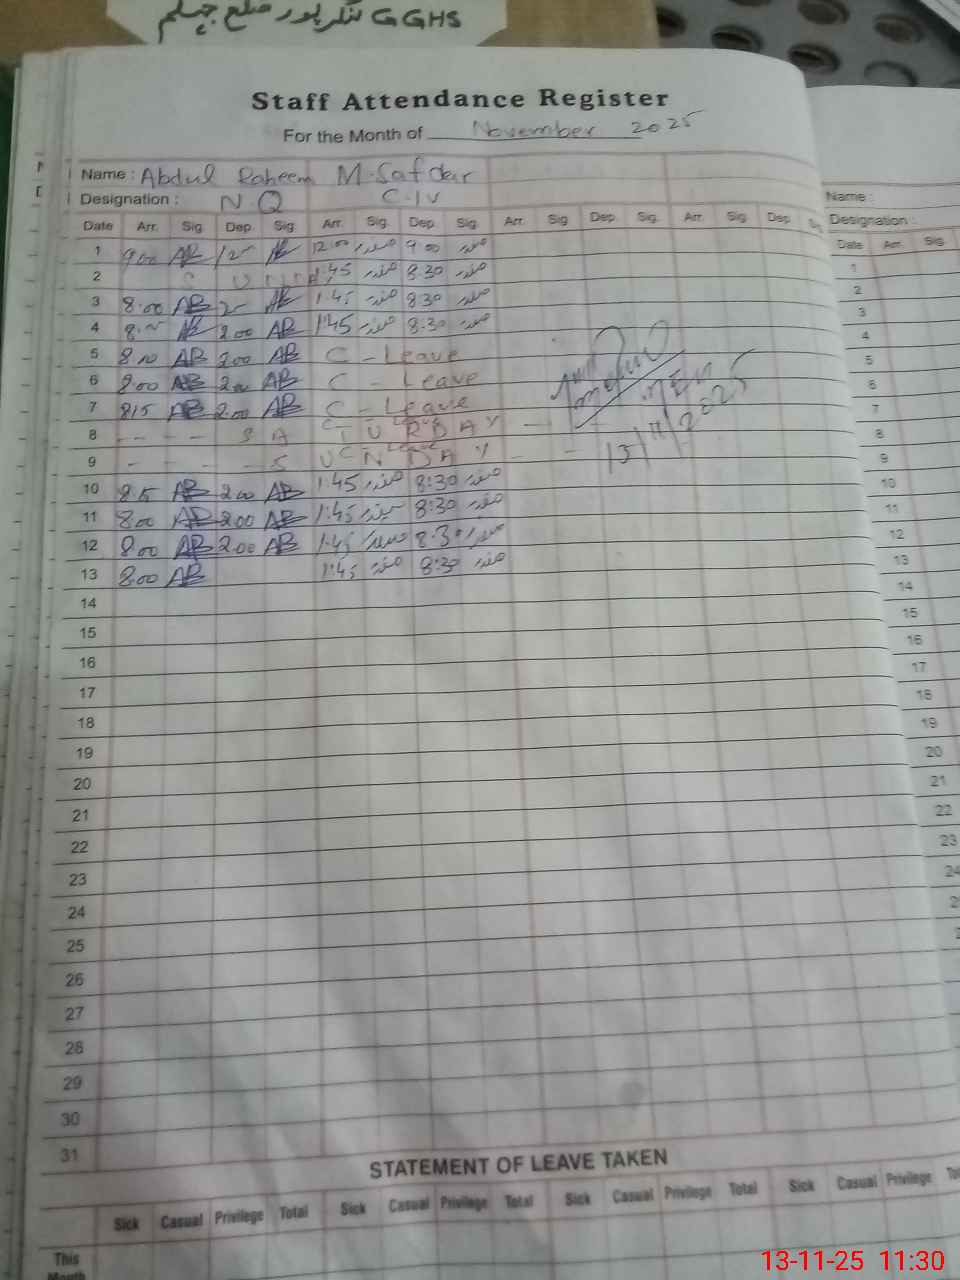 GGHS لنگرپور ضلع جہلم
Staff Attendance Register
For the Month of November 2025
Name : Abdul Raheem M.Safdar
Designation : N.Q C-IV
Date Arr. Sig. Dep. Sig. Arr. Sig. Dep. Sig. Arr. Sig. Dep. Sig. Arr. Sig. Dep. Sig.
1 9:00 AB 12 AB 12:00 صفدر 9:00 صفدر
2 S U N D A 1:45 صفدر 8:30 صفدر
3 8:00 AB 2 AB 1:45 صفدر 8:30 صفدر
4 8:00 AB 2:00 AB 1:45 صفدر 8:30 صفدر
5 8:00 AB 2:00 AB C - Leave
6 8:00 AB 2:00 AB C - Leave
7 8:15 AB 2:00 AB C - Leave
8 - - - - S A T U R D A Y - -
9 - - - - S U N D A Y - -
13/11/2025
10 8:15 AB 2:00 AB 1:45 صفدر 8:30 صفدر
11 8:00 AB 2:00 AB 1:45 صفدر 8:30 صفدر
12 8:00 AB 2:00 AB 1:45 صفدر 8:30 صفدر
13 8:00 AB 1:45 صفدر 8:30 صفدر
14
15
16
17
18
19
20
21
22
23
24
25
26
27
28
29
30
31
STATEMENT OF LEAVE TAKEN
Sick Casual Privilege Total Sick Casual Privilege Total Sick Casual Privilege Total Sick Casual Privilege
This
Month
Name :
Designation :
Date Arr. Sig.
1
2
3
4
5
6
7
8
9
10
11
12
13
14
15
16
17
18
19
20
21
22
23
24
13-11-25 11:30